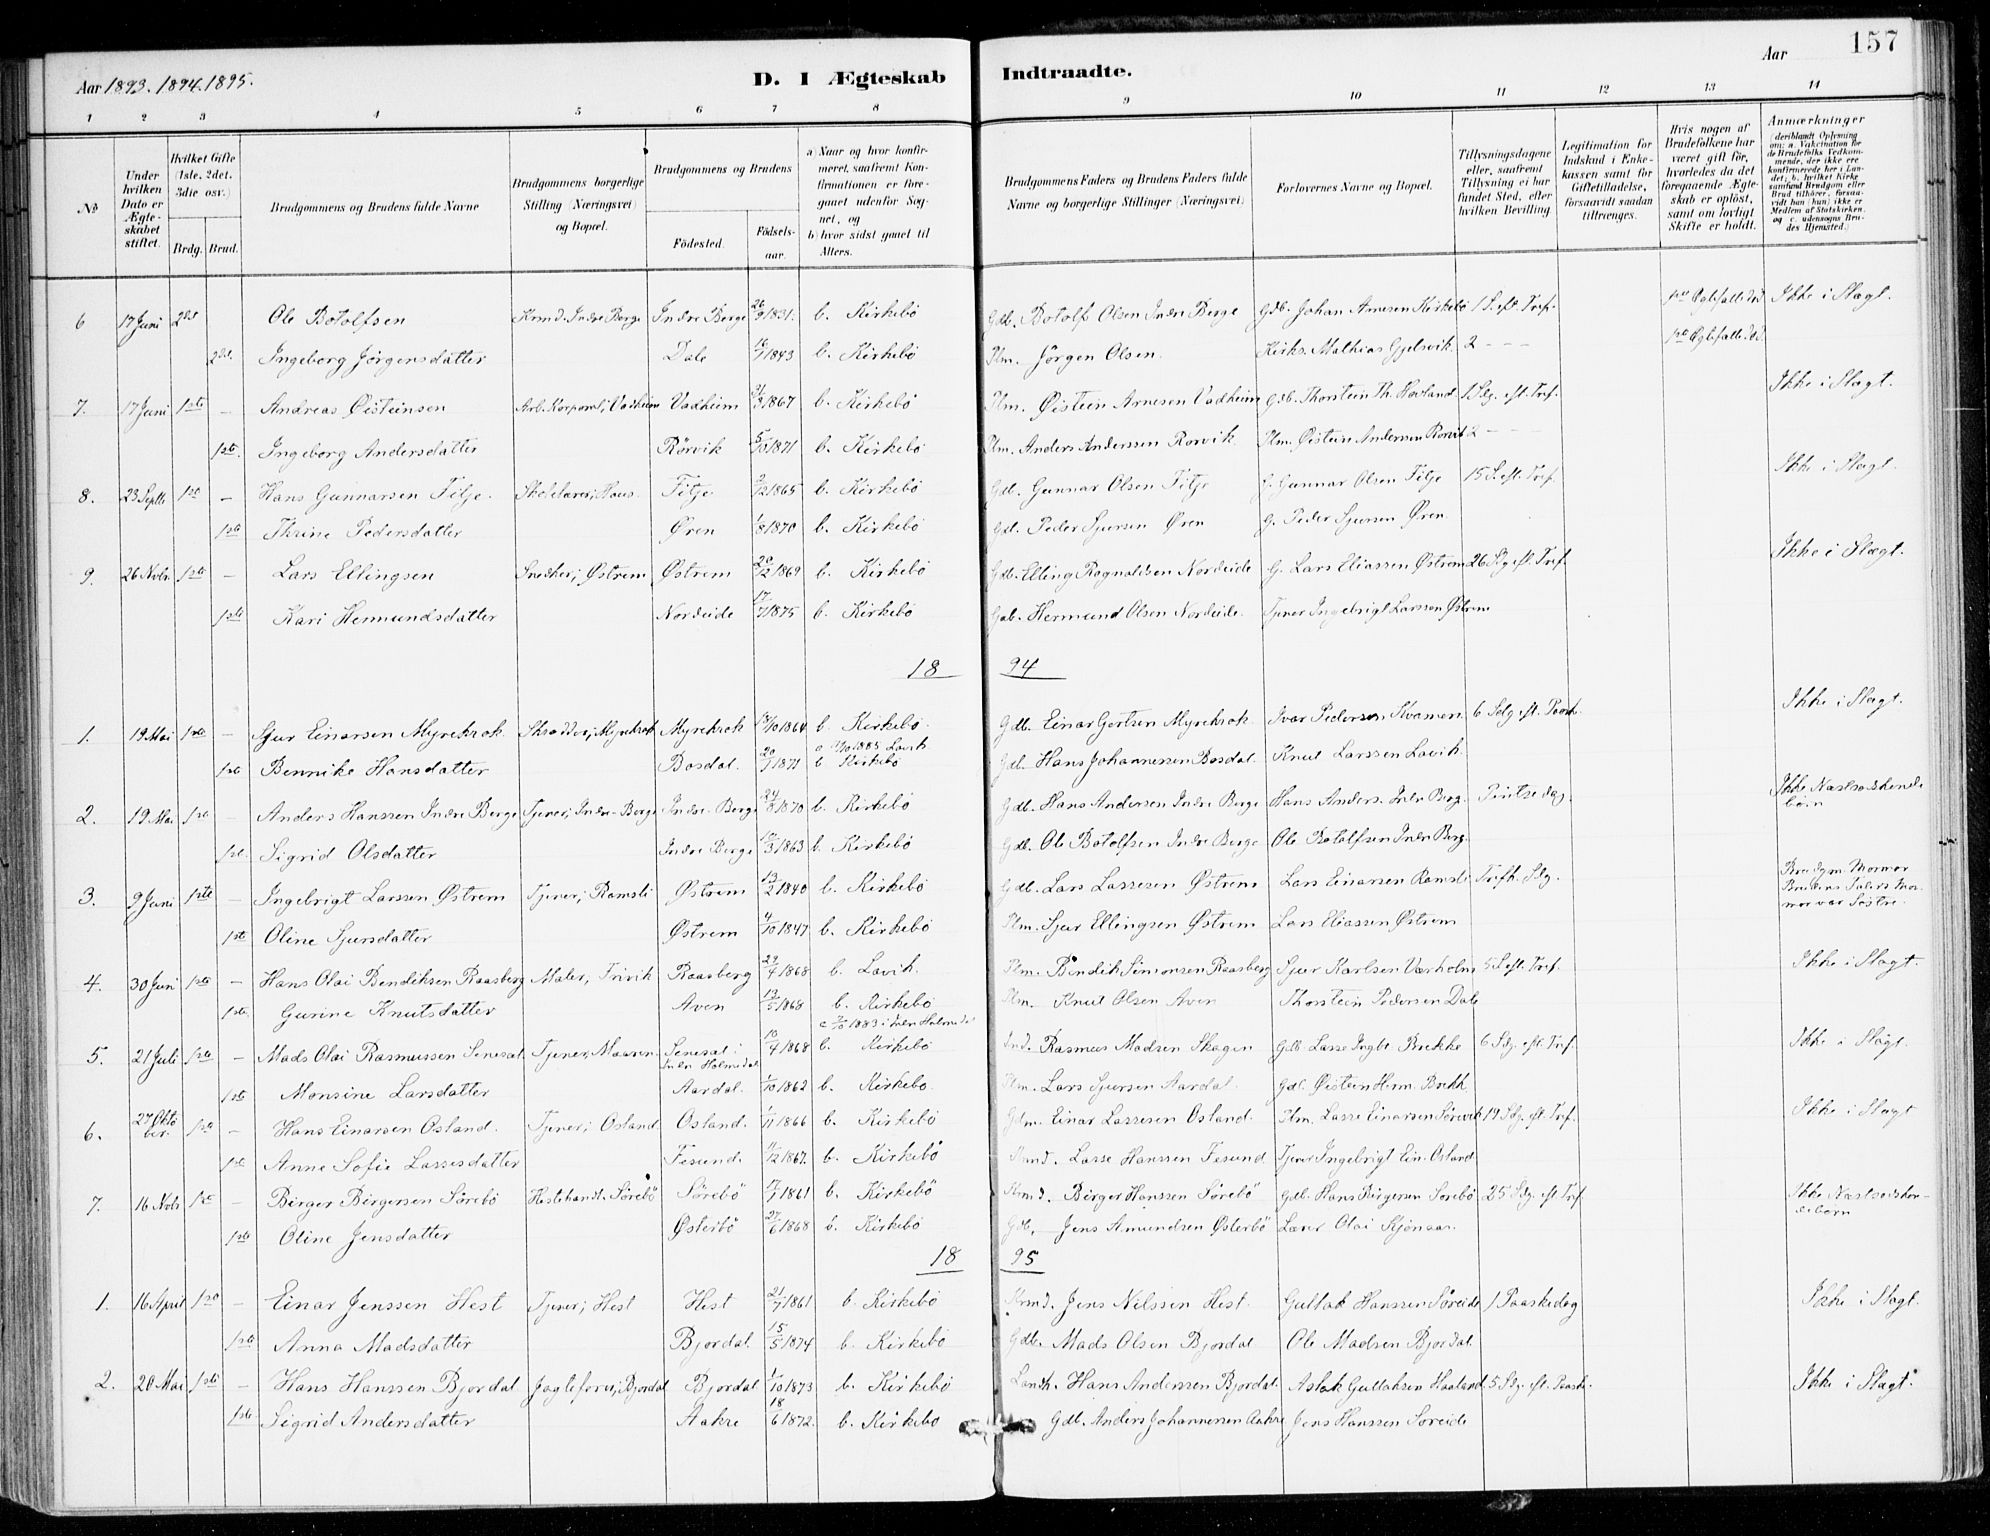 157
Aar 1893. 1894. 1895.
D. I Ægteskab Indtraadte.
Aar
1 2 3 4 5 6 7 8 9 10 11 12 13 14
No
Under hvilken Dato er Ægteskabet stiftet.
Hvilket Gifte (1ste, 2det, 3die osv.)
Brdg. Brud.
Brudgommens og Brudens fulde Navne
Brudgommens borgerlige Stilling (Næringsvei) og Bopæl.
Brudgommens og Brudens
Födested. Födselsaar.
a) Naar og hvor konfirmeret, saafremt Konfirmationen er foregaaet udenfor Sognet, og
b) hvor sidst gaaet til Alters.
Brudgommens Faders og Brudens Faders fulde Navne og borgerlige Stillinger (Næringsvei)
Forlovernes Navne og Bopæl.
Tillysningsdagene eller, saafremt Tillysning ei har fundet Sted, efter hvilken Bevilling.
Legitimation for Indskud i Enkekassen samt for Giftetilladelse, forsaavidt saadan tiltrænges.
Hvis nogen af Brudefolkene har været gift för, hvorledes da det foregaaende Ægteskab er oplöst, samt om lovligt Skifte er holdt.
Anmærkninger (deriblandt Oplysning om: a. Vakcination for de Brudefolks Vedkommende, der ikke ere konfirmerede her i Landet, b. hvilket Kirkesamfund Brudgom eller Brud tilhörer, forsaavidt han (hun) ikke er Medlem af Statskirken, og c. udensogns Brudes Hjemsted.)
6 17 Juni 2det Ole Botolfsen Krmd. Indre Berge Indre Berge 26/9 1831. b. Kirkebö Gdb. Botolf Olsen Indre Berge Gdb. Johan Arnesen Kirkebö 1 S. eft. Tref. Ikke i Slægt.
2det Ingeborg Jörgensdatter Dale 16/1 1843 b. Kirkebö Plm. Jörgen Olsen. Kirks. Mathias Gjelsvik. 2 – – –
7. 17 Juni 1ste – Andreas Øisteinsen Arb. Korporal; Vadheim Vadheim 1867 b. Kirkebö Plm. Øistein Arnesen Vadheim Gdb. Thorstein Th. Hovland 1 Sdg. eft. Tref. Ikke i Slægt.
1ste. Ingeborg Andersdatter Rörvik 5/10 1871 b. Kirkebö Plm. Anders Anderssen Rorvik. Plm. Øistein Andersen Rorvik 2 – – –
8. 23 Septb 1ste – Hans Gunnarsen Titje. Skolelærer; Haus. Titje 2/12 1865 b. Kirkebö Gdb. Gunnar Olsen Titje G. Gunnar Olsen Titje 15 S. eft. Tref. Ikke i Slægt.
1ste Thrine Pedersdatter Øren 1/8 1870 b. Kirkebö Gdb. Peder Sjursen Øren G. Peder Sjursen Øren
9. 26 Novbr. 1ste – Lars Ellingsen Snedker; Østrem Østrem 20/12 1869 b. Kirkebö Gdb. Elling Ragnaldsen Nordeide G. Lars Eliassen Østrem 26 Sdg eft. Tref. Ikke i Slægt.
1ste Kari Hermundsdatter Nordeide 17/7 1875 b. Kirkebö Gdb. Hermund Olsen Nordeide. Tjener Ingebrigt Larssen Østrem
18 94
1. 19 Mai 1ste – Sjur Einarsen Myrekrok. Skrædder; Myrekrok Myrekrok /10 1864 b. Kirkebö. Gdb. Einar Gertsen Myrekrok. Ivar Pedersen Kvamen 6 Sdg eft. Paask. Ikke i Slægt.
1ste Bennike Hansdatter Bosdal. 20/1 1871 a /10 1885 Lavik b Kirkebö Gdb. Hans Johannessen Bosdal. Knut Larssen Lavik
2. 19 Mai 1ste – Anders Hanssen Indre Berge Tjener; Indre-Berge Indre-Berge 24/8 1870 b. Kirkebö Gdb. Hans Andersen Indre Berge Hans Anders. Indr Berg. Pintsedag. Ikke Næstsödskendebörn
1ste. Sigrid Olsdatter Indre Berge 1863 b. Kirkebö Gdb. Ole Botolfsen Indre Berge Ole Botolfsen Indr Berg.
3. 9 Juni 1ste – Ingebrigt Larssen Østrem Tjener; Ramsli Østrem 13/2 1840 b. Kirkebö Gdb. Lars Lassesen Østrem Lars Einarsen Ramsli Trefh. Sdg. Brudgm. Mormor Brudens Faders Mormor var Söstre.
1ste Oline Sjursdatter Østrem 4/10 1847. b. Kirkebö Plm. Sjur Ellingsen Østrem Lars Eliassen Østrem
4. 30 Juni 1ste – Hans Olai Bendiksen Raasberg Maler; Trivik Raasberg 29/4 1868 b. Lavik. Plm. Bendik Simonsen Raasberg Sjur Karlsen Varholm 5 S. eft. Tref. Ikke i Slægt.
1ste. Gurine Knutsdatter Aven 13/5 1868 b. Kirkebö Plm. Knut Olsen Aven Thorstein Pedersen Dale
5. 21 Juli 1ste – Mads Olai Rasmussen Senesat Tjener; Maaren Senesat i Indr Holmedal 10/4 1868 a 1883 i Indr Holmedal b. Kirkebö Ind. Rasmus Madsen Skagen Gdb. Lasse Ingbr. Brekke 6 Sdg. eft. Tref. Ikke i Slægt.
1ste Monsine Larsdatter Aardal. 1/10 1862 b. Kirkebö. Plm. Lars Sjursen Aardal. Gdb. Øistein Herm. Brekk.
6. 27 Oktober. 1ste – Hans Einarsen Osland. Tjener; Osland Osland. 1/11 1866 b. Kirkebö Gdm. Einar Lassesen Osland. Plm. Lasse Einarsen Sörevik 19 Sdg. eft. Tref. Ikke i Slægt
1ste Anne Sofie Lassesdatter Fesund. 11/12 1867. b. Kirkebö Lasse Hanssen Fesund Tjener Ingebrigt Ein. Osland
7. 16 Novbr 1ste – Birger Birgersen Sörebö Hestehandl. Sörebö Sörebö 1861 b. Kirkebö Krmd. Birger Hanssen Sörebö Gdb. Hans Birgersen Sörebö 25 Sdg. eft Tref. Ikke Næstsödskendebörn
1ste Oline Jensdatter Østerbö 27/6 1868 b. Kirkebö Gdb. Jens Amundsen Østerbö Lærer Olai Skjönaas.
18 95
1. 16 April 1ste – Einar Jenssen Hest Tjener; Hest Hest 21/7 1861 b. Kirkebö Krmd. Jens Nilssen Hest. Gullak Hanssen Söreide 1 Paaskedag Ikke i Slægt.
1ste Anna Madsdatter Bjordal 15/5 1874 b. Kirkebö Gdb. Mads Olsen Bjordal Ole Madsen Bjordal
2. 20 Mai 1ste – Hans Hanssen Bjordal Jagtefører; Bjordal Bjordal 1/10 1873 b. Kirkebö Landh. Hans Anderssen Bjordal. Aslak Gullaksen Haaland 5 Sdg. eft. Paask. Ikke i Slægt.
1ste. Sigrid Andersdatter Aakre 18/6 1872. b. Kirkebö Gdb. Anders Johannessen Aakre Jens Hanssen Söreide